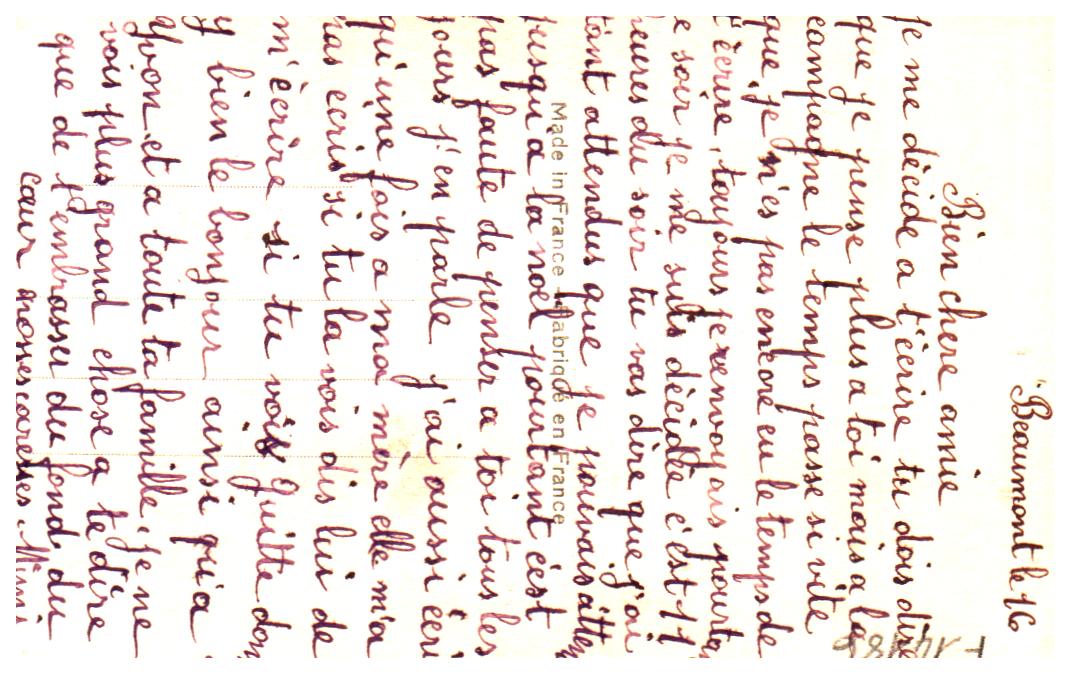 Beaumont le 16
Bien chere amie
je me décide a t'écrire tu dois dire
que je pense plus a toi mais a la
campagne le temps passe si vite
que je n'es pas encore eu le temps de
t'écrire, toujours je renvoyais pourta
e soir je me suis décidée c'est 11
heures du soir tu vas dire que j'ai
tant attendus que je pouvais atten
jusqu'a la noel pourtant c'est
pas faute de penser a toi tous les
jours j'en parle j'ai aussi écri
qu'une fois a ma mère elle m'a
pas ecris si tu la vois dis lui de
m'écrire si tu vois Guitte don
y bien le bonjour ainsi qu'a
Yvon et a toute ta famille, je ne
vois plus grand chose a te dire
que de t'embrasser du fond du
cœur grosses caresses. Mimi
Made in France - Fabriqué en France